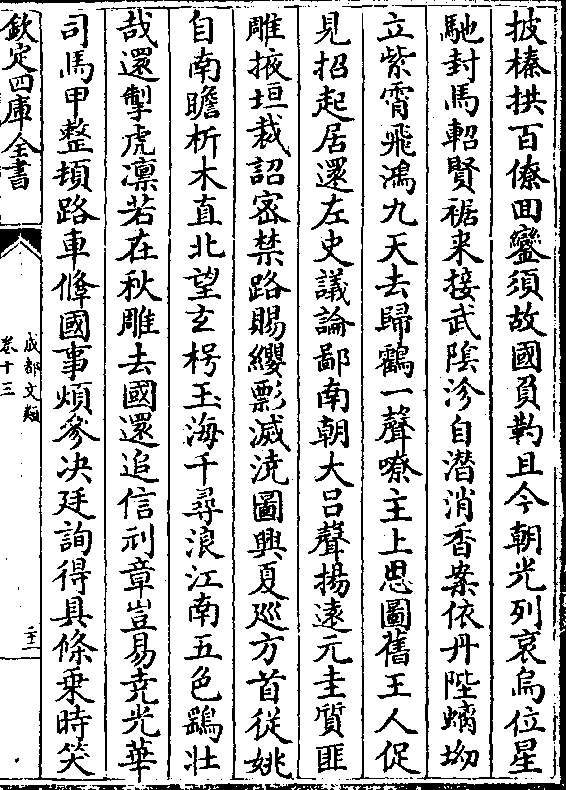 披榛拱百僚回鑾須故國負靮且今朝光列哀烏位星
馳封馬軺賢裾来接武陰沴自潜消香案依丹陛螭坳
立紫霄飛鴻九天去歸鶴一聲嘹主上思圖舊王人促
見招起居還左史議論鄙南朝大吕聲揚遠元圭質匪
雕掖垣裁詔宻禁路賜纓䬙滅澆圖興夏廵方首從姚
自南瞻析木直北望玄枵玉海千尋浪江南五色鷂壮
哉還掣虎凛若在秋雕去國還追信刓章豈易尭光華
司馬甲整頓路車鞗國事煩参决廷詢得具條乗時笑
欽定四庫全書
成都文類
卷十三